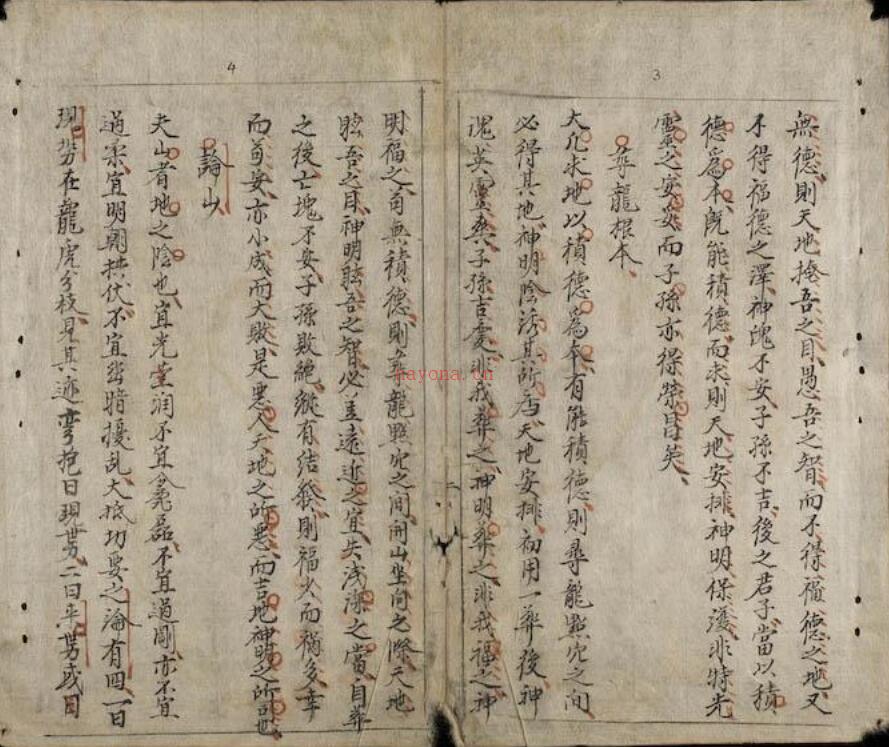 3
無德則天地掩吾之目愚吾之智而不得福德之地又
不得福德之澤神魄不安子孫不吉後之君子當以積
德爲本旣能積德而求則天地安排神明保護非特先
靈之安妥而子孫亦得榮昌矣
尋龍根本
大凡求地以積德爲本有能積德則尋龍點穴之间
必得其地神明陰誘其所居天地安排初用一葬後神
魂英靈與子孫吉慶非我葬之神明葬之非我福之神
4
明福之自無積德則尋龍點穴之间開山坐向之際天地
眩吾之目神明眩吾之智必差遠近之宜失浅深之當自葬
之後亡塊不安子孫敗絕縱有結發則福少而禍多幸
而苟安亦小成而大敗是悪人天地之所悪而吉地神明之所司也
論山
夫山者地之陰也宜光莹润不宜麄磊不宜過剛亦不宜
過柔宜明朝拱伏不宜幽暗擾乱大抵功要之論有四一曰
現势在龍虎分枝見其迹弯抱曰現势二曰平势或目
hayona.cn